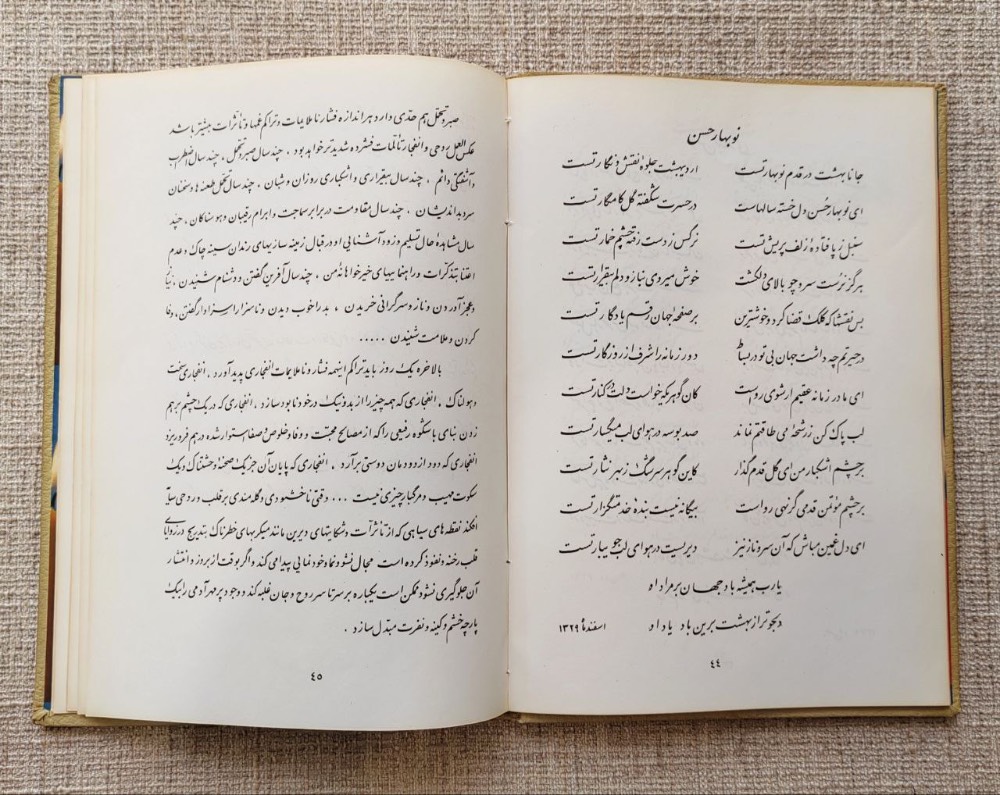 نوبهار حسن
جانا بهشت در قدم نوبهار تست اردیبهشت جلوهٔ نقش و نگار تست
ای نوبهار حُسن دل خسته سالهاست در حسرت شکفته گل کامگار تست
سنبل ز پا فتادهٔ زلف پریش تست نرگس ز دست رفتهٔ چشم خمار تست
هرگز نرست سرو چو بالای دلکشت خوش میروی بناز و دلم بیقرار تست
بس نقشها که کلک قضا کرد و خوشترین بر صفحهٔ جهان رقم یادگار تست
در حیرتم چه داشت جهان بی تو در بساط دور زمانه را شرف از روزگار تست
ای مادر زمانه عقیم ار شوی رواست کان گوهر که خواست دلت در کنار تست
لب پاک کن ز رشحهٔ می طاقتم نماند صد بوسه در هوای لب میگسار تست
بر چشم اشکبار من ای گل قدم گذار کاین گوهر سرشگ ز بهر نثار تست
بر چشم مؤتمن قدمی گر نهی رواست بیگانه نیست بندهٔ خدمتگزار تست
ای دل غمین مباش که آن سرو ناز نیز دیریست در هوای لب جویبار تست
یارب همیشه باد جهان بر مراد او
دلجوتر از بهشت برین باد یاد او اسفند ماه ۱۳۲۹
٤٤
صبر و تحمّل هم حدّی دارد هر اندازه فشار ناملایمات و تراکم غمها و تأثرات بیشتر باشد
عکس العمل روحی و انفجار تألمات فشرده شدیدتر خواهد بود . چند سال صبر و تحمل ، چند سال اضطراب
و آشفتگی دائم ، چند سال بیقراری و اشکباری روزان و شبان ، چند سال تحمّل طعنه ها و سخنان
سرد بداندیشان ، چند سال مقاومت در برابر سماجت و ابرام رقیبان و هوسناکان ، چند
سال مشاهدهٔ حال تسلیم و زود آشنایی او در قبال زمینه سازیهای رندان سینه چاک و عدم
اعتنا بتذکرات و راهنماییهای خیرخواهانهٔ من ، چند سال آفرین گفتن و دشنام شنیدن ، نیاز
و عجز آوردن و ناز و سرگرانی خریدن ، بد را خوب دیدن و ناسزا را سزاوار گفتن ، دعا
کردن و ملامت شنیدن .....
بالاخره یک روز باید تراکم اینهمه فشار و ناملایمات انفجاری پدید آورد . انفجاری سخت
و هولناک . انفجاری که همه چیز را از بد و نیک در خود نابود سازد . انفجاری که در یک چشم برهم
زدن بنای باشکوه رفیعی را که از مصالح محبت و وفا و خلوص و صفا استوار شده درهم فرو ریزد
انفجاری که دود از دودمان دوستی برآرد . انفجاری که پایان آن جز یک صحنهٔ وحشتناک و یک
سکوت مهیب و مرگبار چیزی نیست ... وقتی ناخشنودی و گله مندی بر قلب و روحی سایه
افکند نقطه های سیاهی که از تأثرات و شکایتهای دیرین مانند میکربهای خطرناک بتدریج در زوایای
قلب رخنه و نفوذ کرده است مجال نشو و نما و خودنمایی پیدا می کند و اگر بوقت از بروز و انتشار
آن جلوگیری نشود ممکن است یکباره بر سرتاسر روح و جان غلبه کند و وجود پر مهر آدمی را بیک
پارچه خشم و کینه و نفرت مبدل سازد .
٤٥